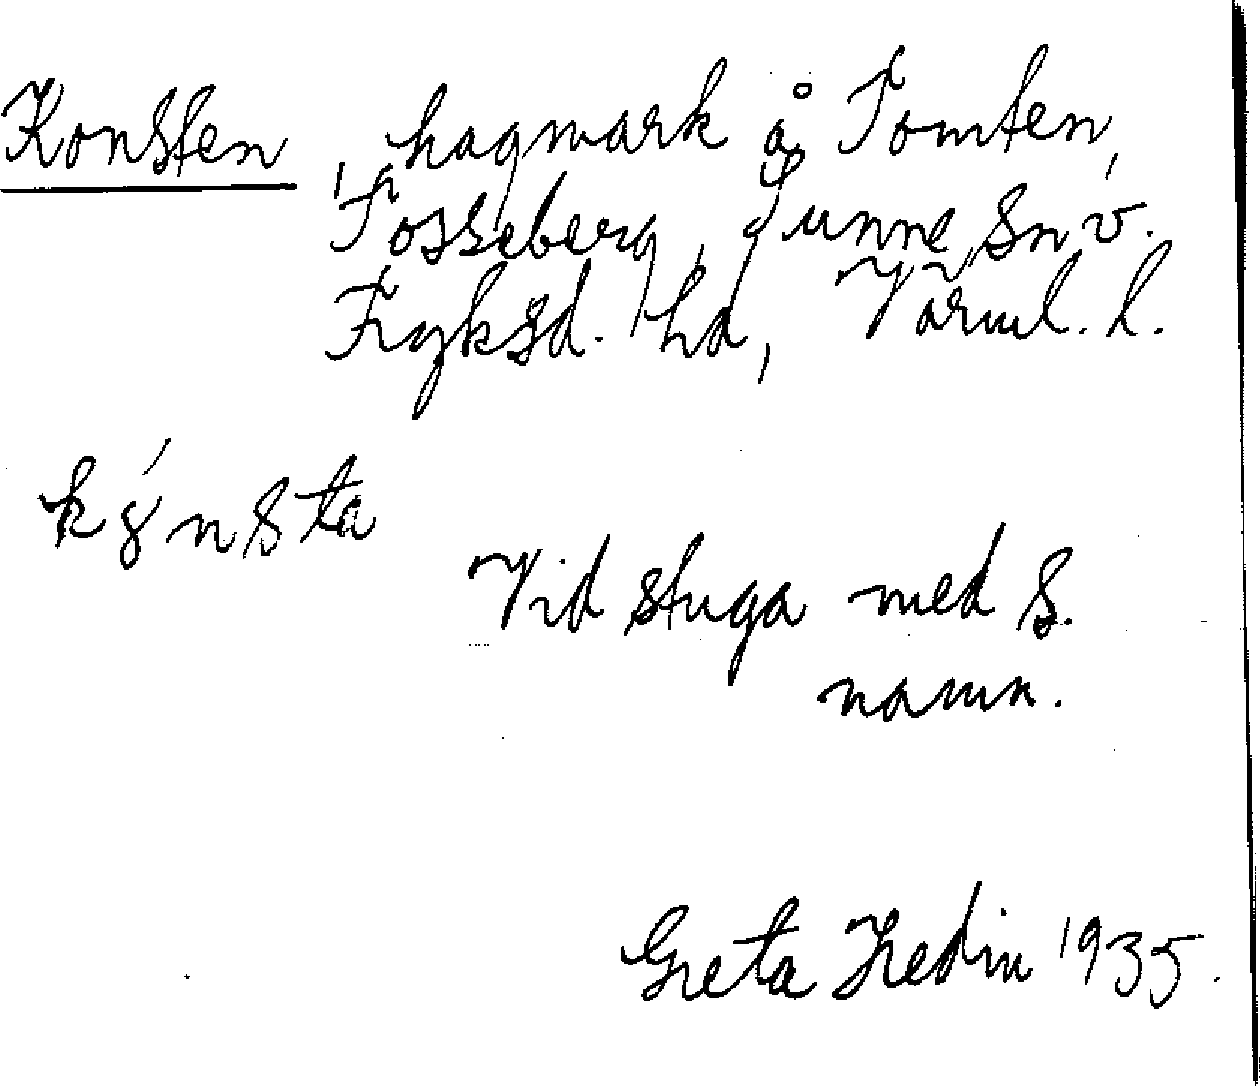 Konsten, hagmark å Tomten,
Tosseberg, Sunne sn v.
Fryksd. hd, Värml. l.
kó̢nsta
Vid stuga med s.
namn.
Greta Hedin 1935.